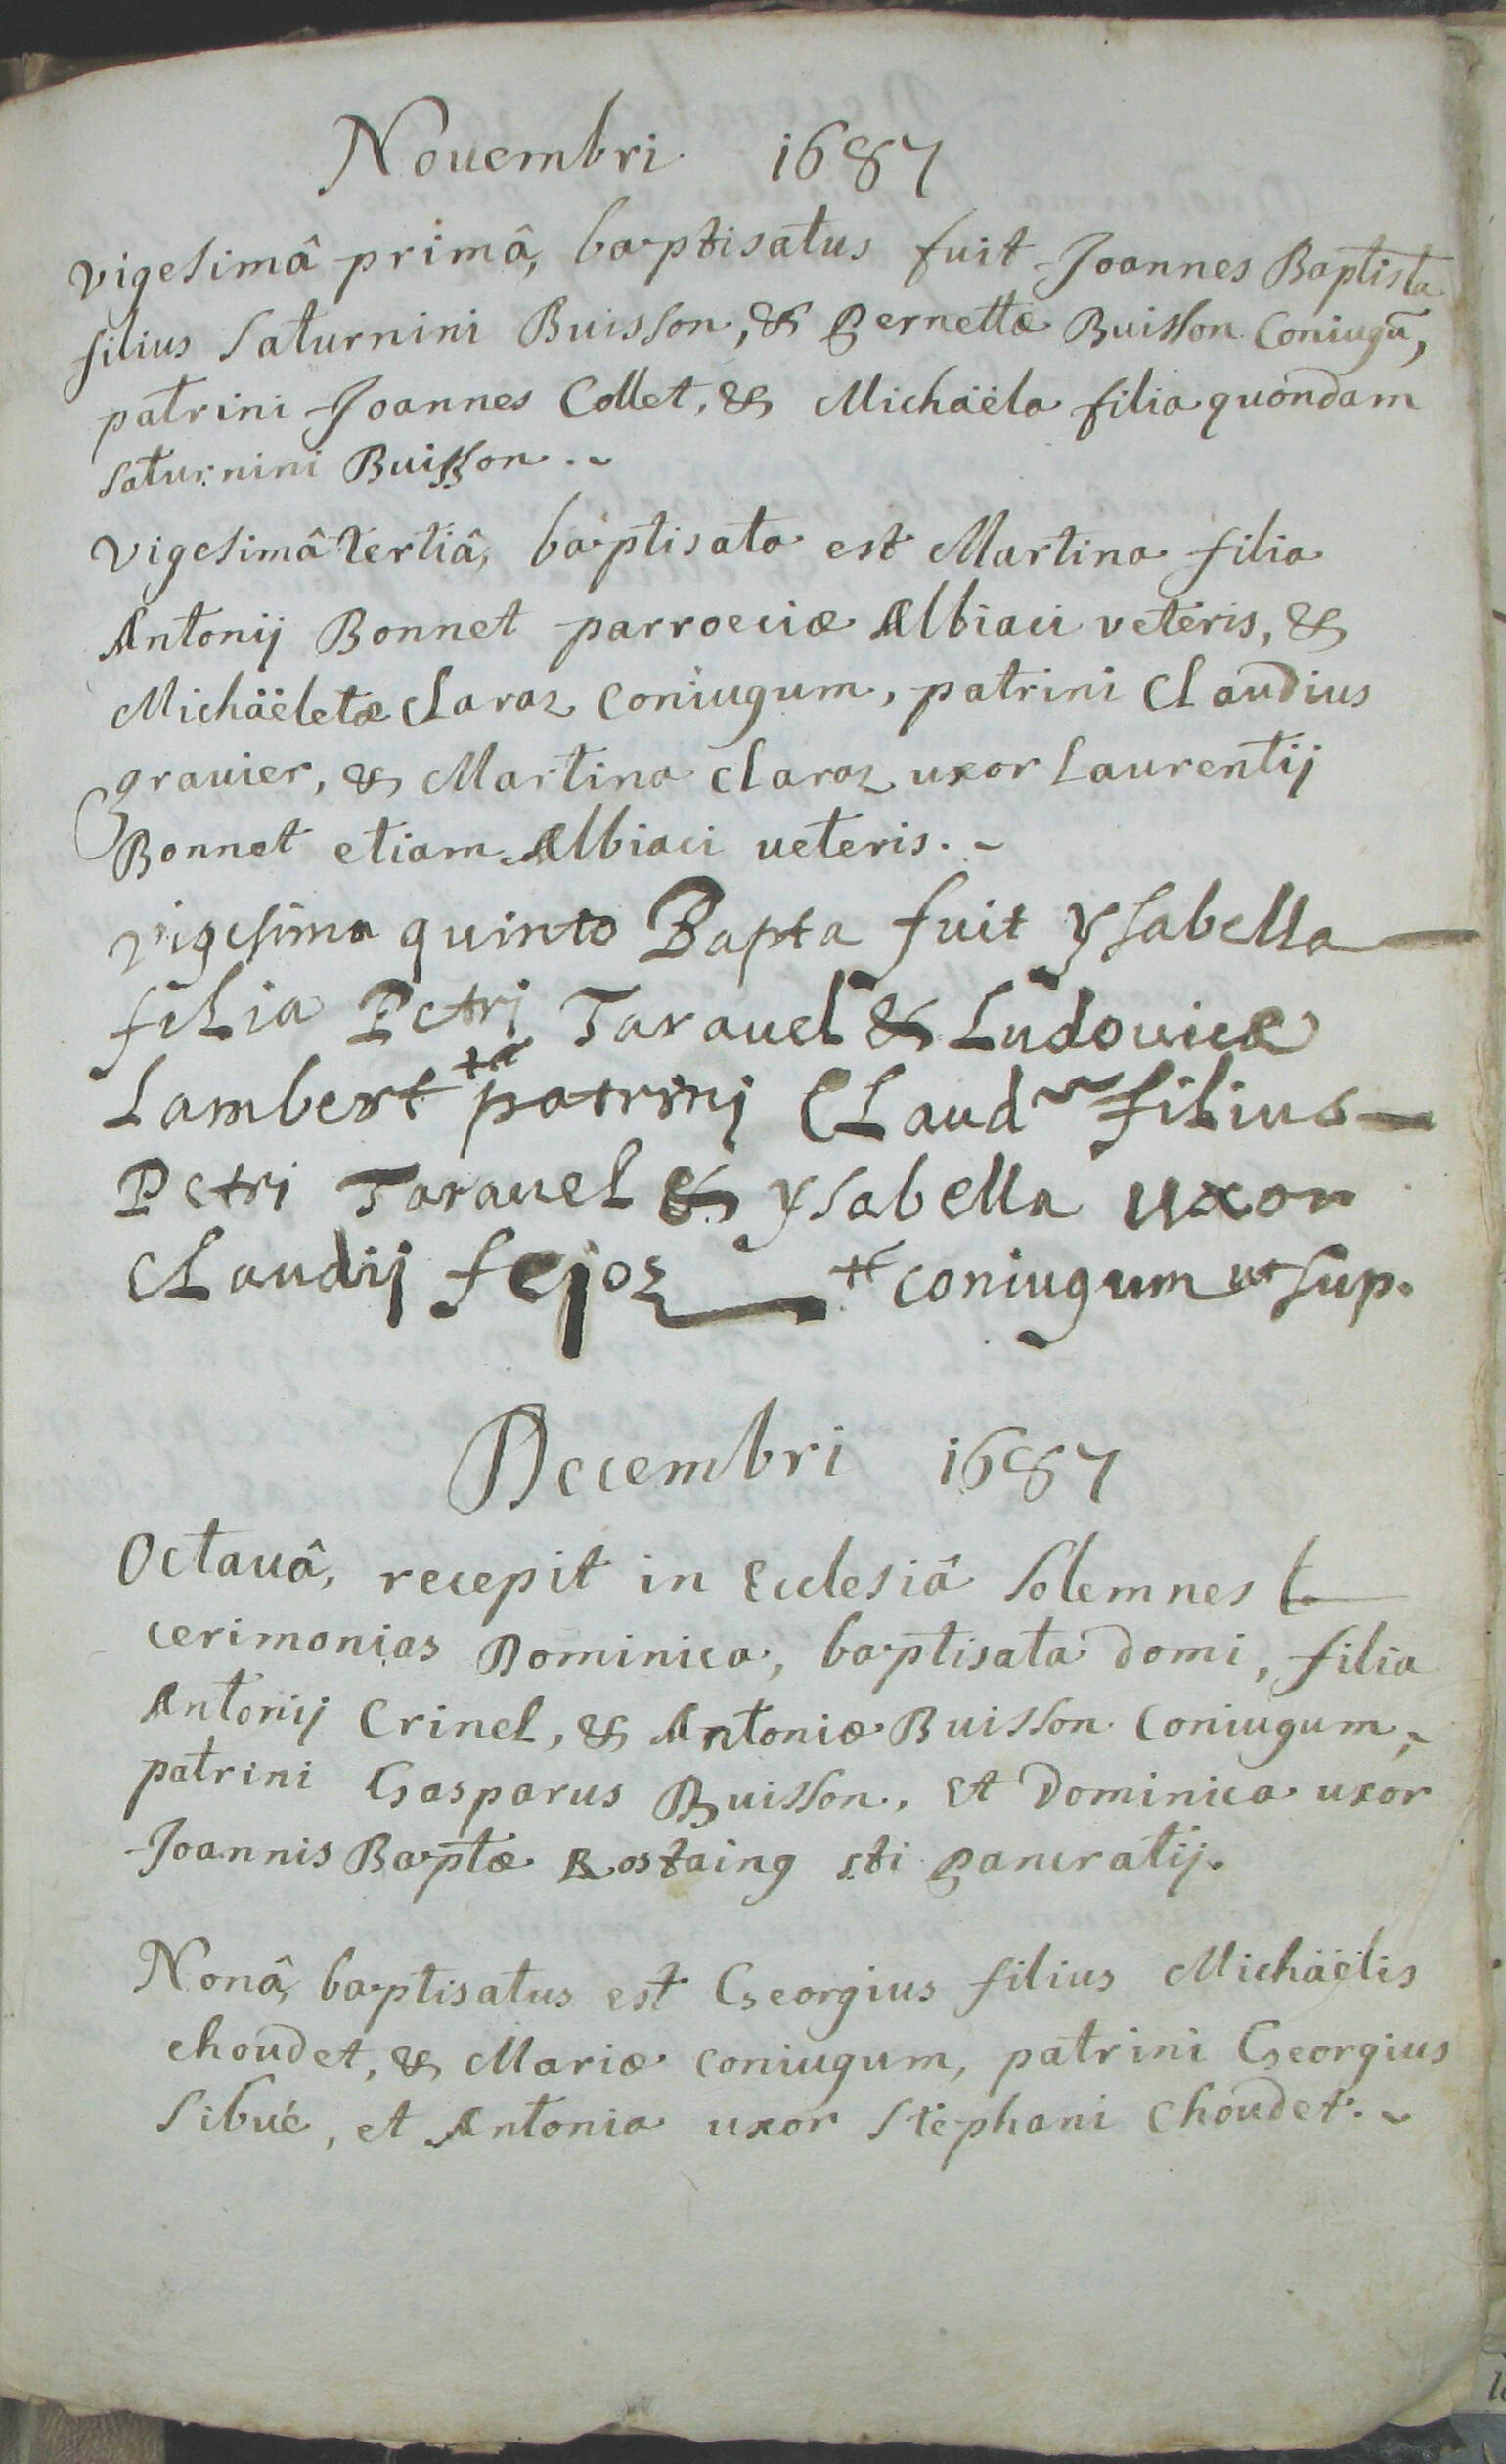 Nouembri 1687
vigesimâ primâ, baptisatus fuit Joannes Baptista
filius Saturnini Buisson, & Pernettæ Buisson Coniugũ,
patrini Joannes Collet, & Michäela filia quondam
Saturnini Buisson. ~
vigesimâ tertiâ, baptisata est Martina filia
Antonij Bonnet parroeciæ Albiaci veteris, &
Michäeletæ Claraz Coniugum, patrini Claudius
grauier, & Martina Claraz uxor Laurentij
Bonnet etiam Albiaci ueteris. ~
vigesima quinto Bapta fuit ysabella
filia Petrj Tarauel & Ludouicæ
Lambert ++ patrinj Claud filius
Petri Tarauel & ysabella uxor
Claudij fejoz ++ coniugum ut sup.
Decembri 1687
Octauâ, recepit in Ecclesiâ Solemnes
cerimonias Dominica, baptisata domi, filia
Antonij Crinel, & Antoniæ Buisson Coniugum,
patrini Gasparus Buisson, et Dominica uxor
Joannis Baptæ Rostaing sti Pancratij.
Nonâ, baptisatus est Georgius filius Michäelis
choudet, & Mariæ coniugum, patrini Georgius
Sibué, et Antonia uxor Stephani Choudet. ~